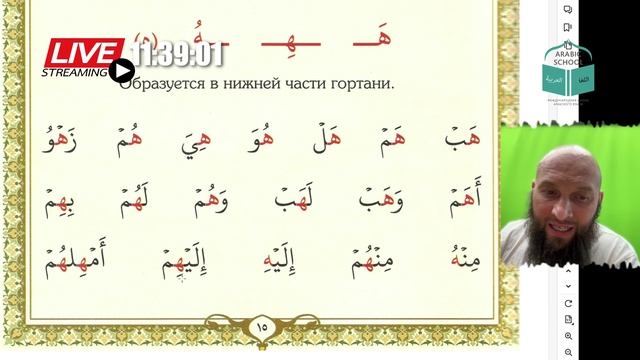 LIVE
STREAMING
11:39:01
هَـ ـهِـ ـهُ (ه)
ARABIC
SCHOOL
اللغة العربية
Образуется в нижней части гортани.
هَبْ هَمْ هَلْ هُوَ هِيَ هُمْ زَهْوُ
أَهَمْ وَهَبْ لَهَبْ وَهُمْ لَهُمْ بِهِمْ
مِنْهُ مِنْهُمْ إِلَيْهِ إِلَيْهِمْ أَمْهِلْهُمْ
١٥